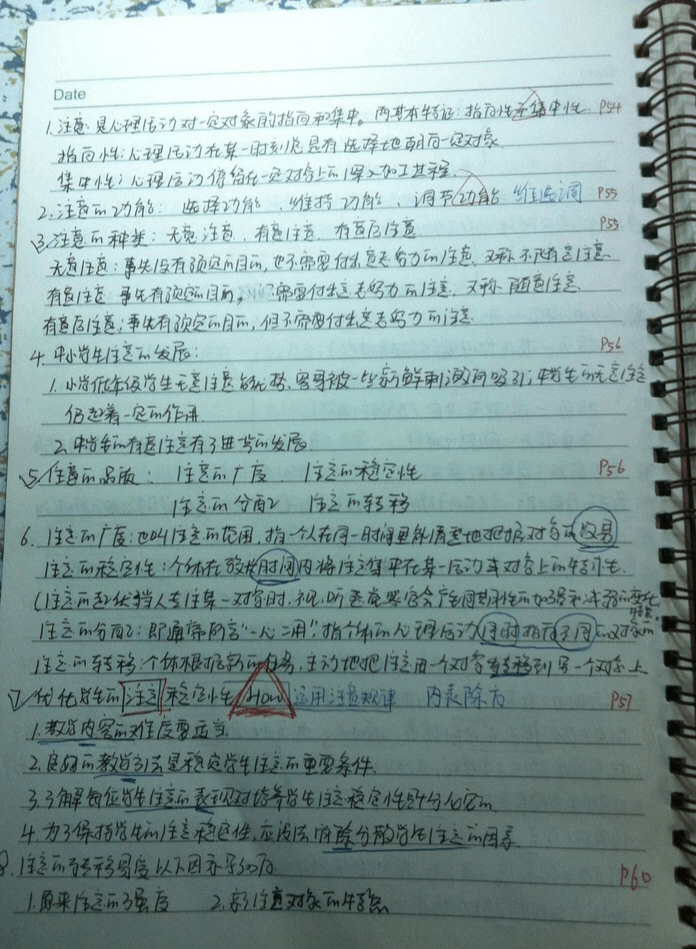 Date
1.注意:是心理活动对一定对象的指向和集中。两基本特征:指向性和集中性 P54
指向性:心理活动在某一时刻总是有选择地朝向一定对象
集中性:心理活动停留在一定对象上的深入加工过程
2.注意的功能: 选择功能、维持功能、调节功能 维选调 P55
3.注意的种类:无意注意、有意注意、有意后注意 P55
无意注意:事先没有预定的目的,也不需要付出意志努力的注意,又称不随意注意
有意注意:事先有预定的目的,需要付出意志努力的注意,又称随意注意
有意后注意:事先有预定的目的,但不需要付出意志努力的注意
4.中小学生注意的发展: P56
1.小学低年级学生无意注意占优势,容易被一些新鲜刺激所吸引;中学生的无意注意
仍起着一定的作用
2.中学生的有意注意有了进一步的发展
5.注意的品质: 注意的广度 注意的稳定性 P56
注意的分配 注意的转移
6.注意的广度:也叫注意的范围,指一个人在同一时间里能清楚地把握对象的数量
注意的稳定性:个体在较长时间内将注意集中在某一活动或对象上的特性
(注意的起伏:当人专注某一对象时,感觉会产生周期性的加强和减弱的变化
注意的分配:即通常所言“一心二用”,指个体的心理活动同时指向不同的对象
注意的转移:个体根据新的任务,主动地把注意由一个对象转移到另一个对象上
7.优化学生的注意稳定性 How 运用注意规律 内表除方 P57
1.教学内容的难度要适当
2.良好的教学方法是稳定学生注意的重要条件
3.了解每位学生注意的表现对培养学生注意稳定性是十分必需的
4.为了保持学生的注意稳定性,应设法消除分散学生注意的因素
8.注意的转移易受以下因素影响 P60
1.原来注意的强度 2.新注意对象的特点